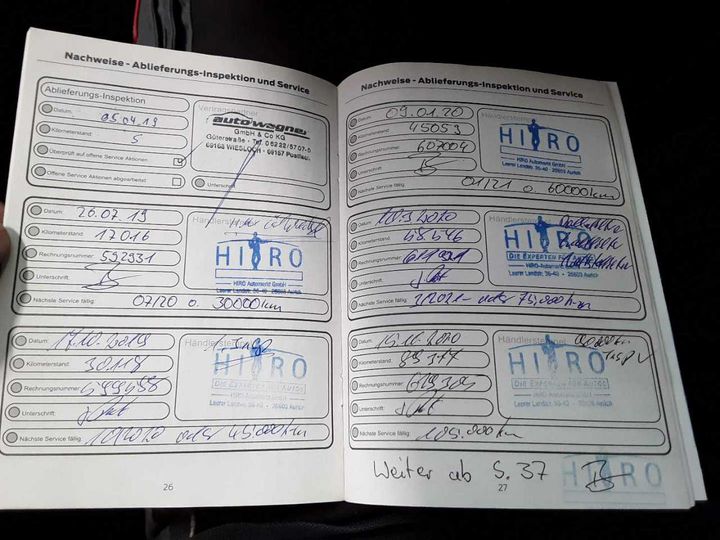 Nachweise - Ablieferungs-Inspektion und Service
Ablieferungs-Inspektion
Datum: 05.04.19
Kilometerstand: 5
Überprüft auf offene Service Aktionen
Offene Service Aktionen abgearbeitet
Vertragspartner
autowagner
GmbH & Co KG
Güterstraße · Tel. 06222/5707-0
69168 WIESLOCH · 69157 Postfach
Unterschrift
Datum: 26.07.19
Kilometerstand: 17016
Rechnungsnummer: 592931
Unterschrift
Nächste Service fällig: 07/20 o. 30000km
Händlerstempel
HIRO
HIRO Automarkt GmbH
Leerer Landstr. 36-40 · 26603 Aurich
Datum: 17.10.2019
Kilometerstand: 30118
Rechnungsnummer: 599698
Unterschrift
Nächste Service fällig: 10/2020 oder 45.000km
Händlerstempel
HIRO
DIE EXPERTEN FÜR AUTOS
HIRO Automarkt GmbH
Leerer Landstr. 36-40 · 26603 Aurich
26
Nachweise - Ablieferungs-Inspektion und Service
Datum: 09.01.20
Kilometerstand: 45053
Rechnungsnummer: 607004
Unterschrift
Nächste Service fällig: 01/21 o. 60000km
Händlerstempel
HIRO
HIRO Automarkt GmbH
Leerer Landstr. 36-40 · 26603 Aurich
Datum:
Kilometerstand: 58546
Rechnungsnummer:
Unterschrift
Nächste Service fällig: 3/2021 oder 75.000km
HIRO
DIE EXPERTEN FÜR AUTOS
HIRO Automarkt GmbH
Leerer Landstr. 36-40 · 26603 Aurich
Datum: 15.10.2020
Kilometerstand: 89377
Rechnungsnummer:
Unterschrift
Nächste Service fällig: 105.000km
Händlerstempel
HIRO
DIE EXPERTEN FÜR AUTOS
HIRO Automarkt GmbH
Leerer Landstr. 36-40 · 26603 Aurich
Weiter ab S. 37
27
HIRO